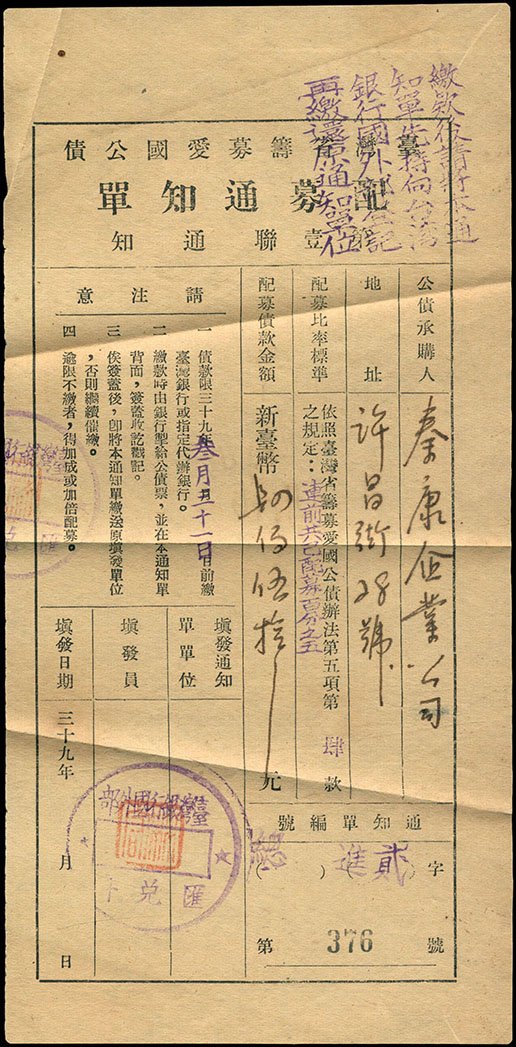 繳款後請將本通
知單先持向台灣
銀行國外部登記
再繳還原通知單位
臺灣省籌募愛國公債
配募通知單
第壹聯通知
公債承購人 泰康企業公司
地址 許昌街28號
配募比率標準 依照臺灣省籌募愛國公債辦法第五項第肆款
之規定：連前共已配募百分之五
配募債款金額 新臺幣 佰伍拾 元
通知單編號
貳進 字
第 376 號
請注意
一 債款限三十九年叁月五十一日日前繳
臺灣銀行或指定代辦銀行。
二 繳款時由銀行掣給公債票，並在本通知單
背面，簽蓋收訖戳記。
三 俟簽蓋後，卽將本通知單繳送原塡發單位
，否則繼續催繳。
四 逾限不繳者，得加成或加倍配募。
塡發通知
單單位
塡發員
塡發日期 三十九年 月 日
臺灣銀行國外部
匯兌下
臺灣銀行
匯兌